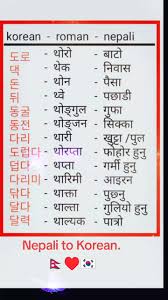 korean - roman - nepali
도로 - थोरो - बाटो
댁 - थेक - निवास
돈 - थोन - पैसा
뒤 - थ्वे - पछाडी
동굴 - थोङ्गुल - गुफा
동전 - थोङ्जन - सिक्का
다리 - थारी - खुट्टा /पुल
도럽다 - थोरप्ता - फोहोर हुनु
덥다 - थप्ता - गर्मी हुनु
다리미 - थारिमी - आइरन
닦다 - थाक्ता - पुछ्नु
달다 - थाल्ता - गुलियो हुनु
달력 - थाल्यक - पात्रो
Nepali to Korean.